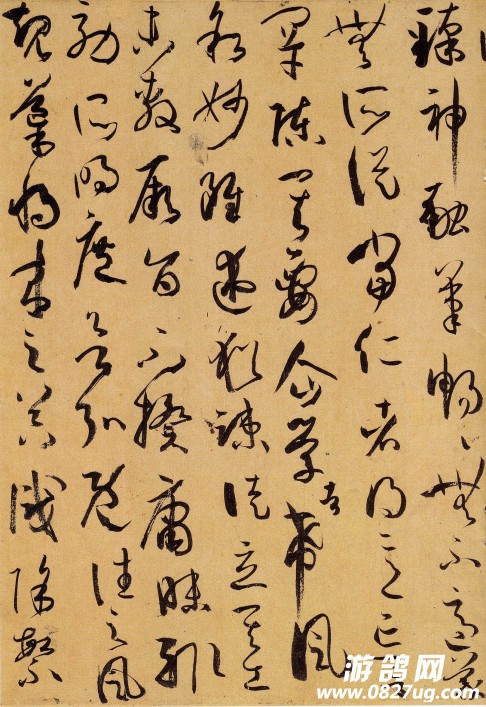 臻神融筆暢〻無不適蒙
無所從當仁者得意忘言
罕陳其要企學者希風
敘妙雖述猶疎徒立其工
未敷厥旨不揆庸昧輒
效所明庶欲弘既往之風
規導將來之器識除繁
游鸽网
www.0827ug.com